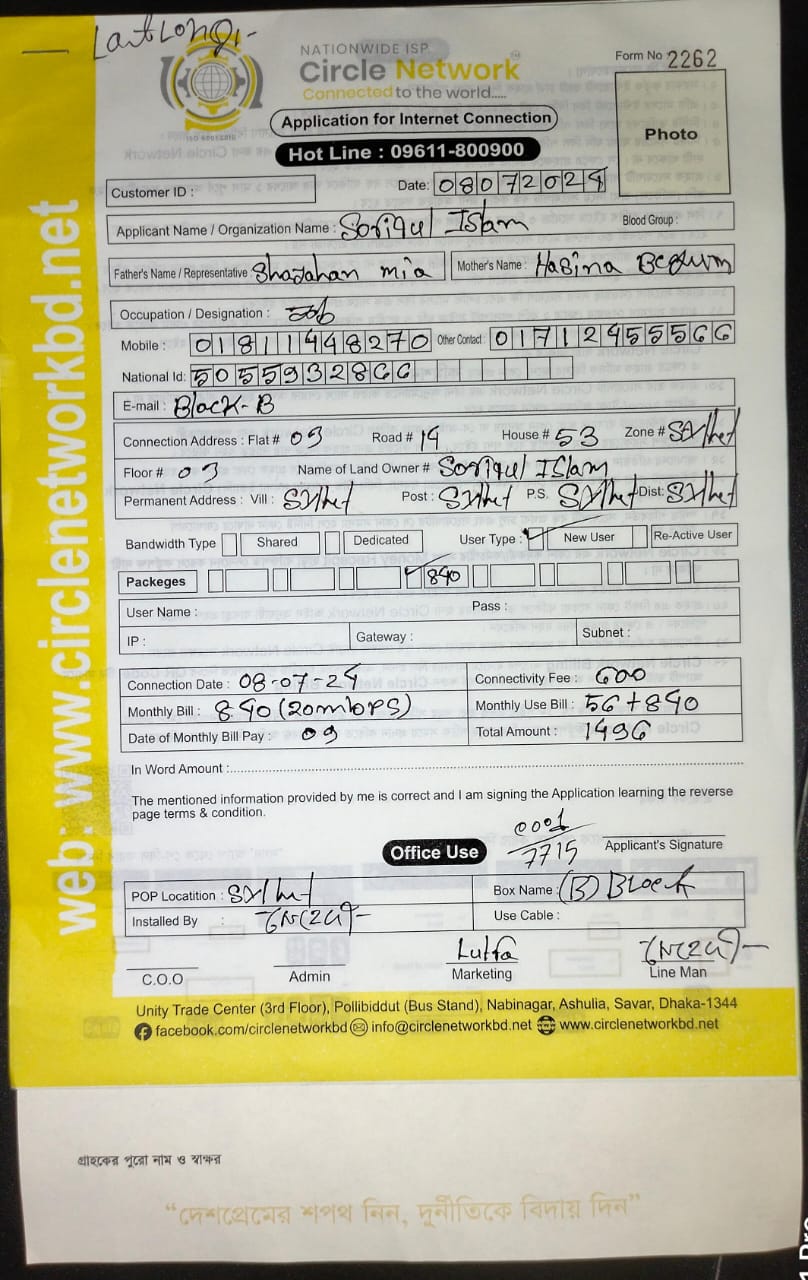 NATIONWIDE ISP
Circle Network
Connected to the world.....
ISO 9001:2015
Form No 2262
Application for Internet Connection
Hot Line : 09611-800900
Photo
Customer ID :
Date: 08072024
Applicant Name / Organization Name : Soriqul Islam Blood Group :
Father's Name / Representative Shajahan mia Mother's Name : Hasina Begum
Occupation / Designation : Job
Mobile : 01811448270 Other Contact : 01712455566
National Id: 5055932866
E-mail : Block-B
Connection Address : Flat # 03 Road # 14 House # 53 Zone # Sylhet
Floor # 03 Name of Land Owner # Soriqul Islam
Permanent Address : Vill : Sylhet Post : Sylhet P.S. Sylhet Dist: Sylhet
Bandwidth Type Shared Dedicated User Type : New User Re-Active User
Packeges 840
User Name : Pass :
IP : Gateway : Subnet :
Connection Date : 08-07-24 Connectivity Fee : 600
Monthly Bill : 840 (20mbps) Monthly Use Bill : 56+840
Date of Monthly Bill Pay : 09 Total Amount : 1496
In Word Amount :
The mentioned information provided by me is correct and I am signing the Application learning the reverse
page terms & condition.
0001
7715
Office Use
Applicant's Signature
POP Locatition : Sylhet Box Name : (B) Block
Installed By : Use Cable :
C.O.O Admin Lutfa Marketing Line Man
Unity Trade Center (3rd Floor), Pollibiddut (Bus Stand), Nabinagar, Ashulia, Savar, Dhaka-1344
facebook.com/circlenetworkbd info@circlenetworkbd.net www.circlenetworkbd.net
web: www.circlenetworkbd.net
গ্রাহকের পুরো নাম ও স্বাক্ষর
“দেশপ্রেমের শপথ নিন, দুর্নীতিকে বিদায় দিন”